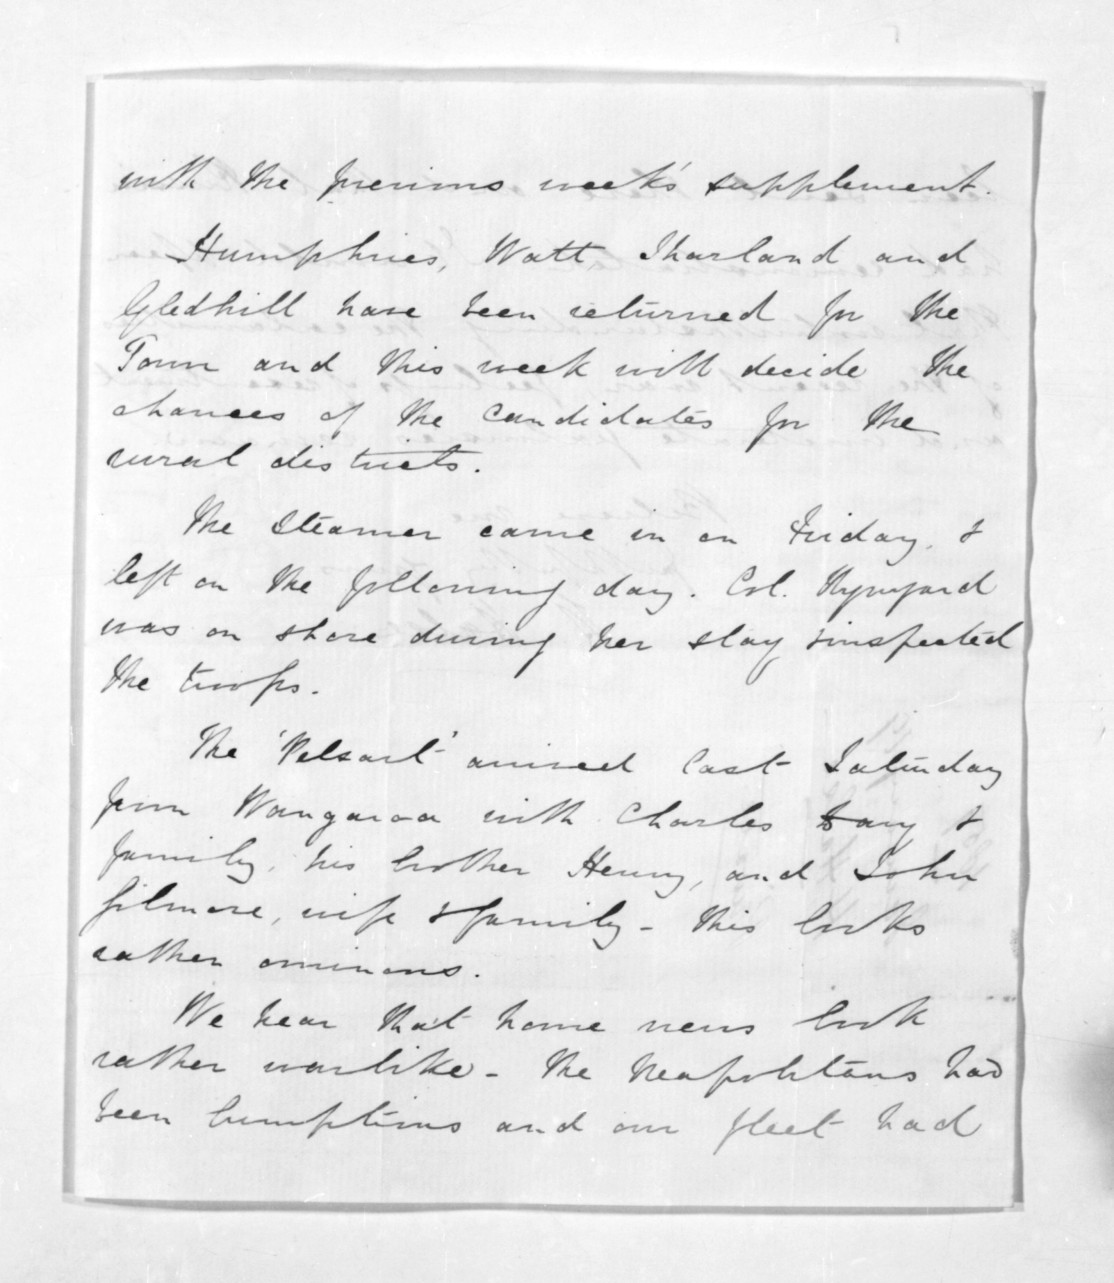 with the previous week's supplement.
Humphries, Watt, Sharland and
Gledhill have been returned for the
Town and this week will decide the
chances of the candidates for the
rural districts.
The steamer came in on Friday, &
left on the following day. Col. Wynyard
was on shore during her stay & inspected
the troops.
The 'Pelsart' arrived last Saturday
from Wangaroa with Charles Davy &
family, his brother Henry, and John
Gilmore, wife & family - this looks
rather ominous.
We hear that home news look
rather warlike - The Neapolitans had
been bumptious and our fleet had